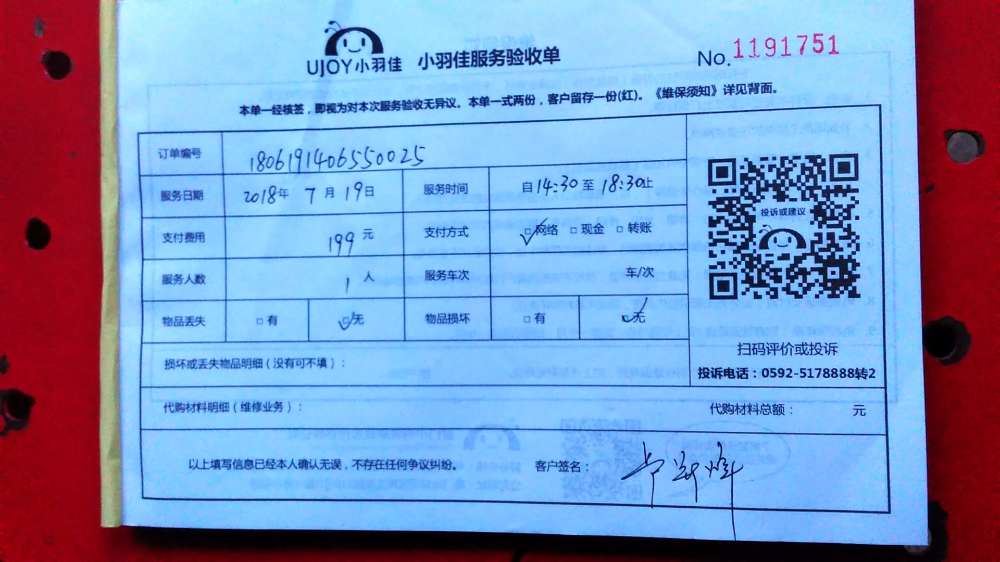 UJOY小羽佳 小羽佳服务验收单 No.1191751
本单一经核签，即视为对本次服务验收无异议。本单一式两份，客户留存一份(红)。《维保须知》详见背面。
订单编号 1806191406550025
服务日期 2018年7月19日 服务时间 自14:30至18:30止
支付费用 199元 支付方式 □网络 □现金 □转账
服务人数 1人 服务车次 车/次
物品丢失 □有 □无 物品损坏 □有 □无
投诉或建议
扫码评价或投诉
投诉电话：0592-5178888转2
损坏或丢失物品明细（没有可不填）：
代购材料明细（维修业务）： 代购材料总额： 元
以上填写信息已经本人确认无误，不存在任何争议纠纷。 客户签名：